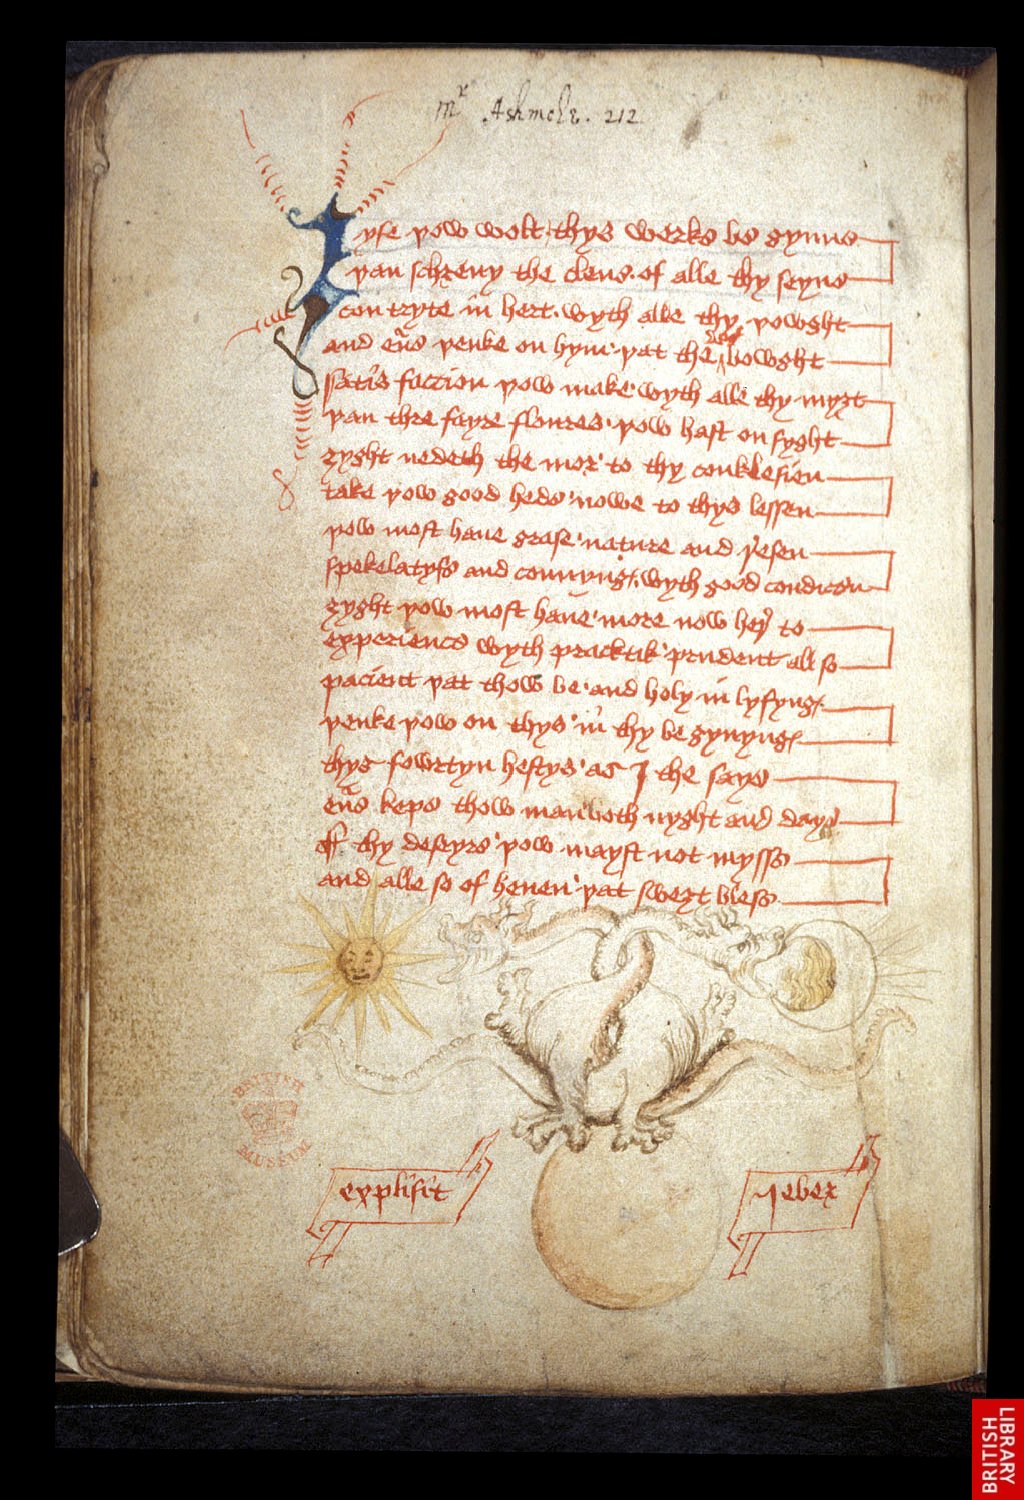 Mr Ashmole. 212
Iyfe þow wolt thys werke be gynne
þan schreny the clene of alle thy seyne
con tryte in hert wyth alle thy þowght
and eũ þenke on hym þat the bowght
satis faccion þow make wyth alle thy myȝt
þan thre fayre floures þow hast on syght
ȝyght nedeth the mor to thy conklesien
take þow good hede nowe to thys lessen
þow most haue grase nature and resen
spekelatyfe and connyng wyth good condicõn
ȝyght þow most haue more now her to
experience wyth pracktik prudent all so
pacient þat thow be and holy in lyfyng
þenke þow on thys in thy be gynyng
thys fowrtyn hestys as I the saye
eũe kepe thow man both nyght and daye
off thy deseyre þow mayst not mysse
and alle so of heuen þat swet bless
explisit
Jeber
BRITISH
MUSEUM
BRITISH
LIBRARY